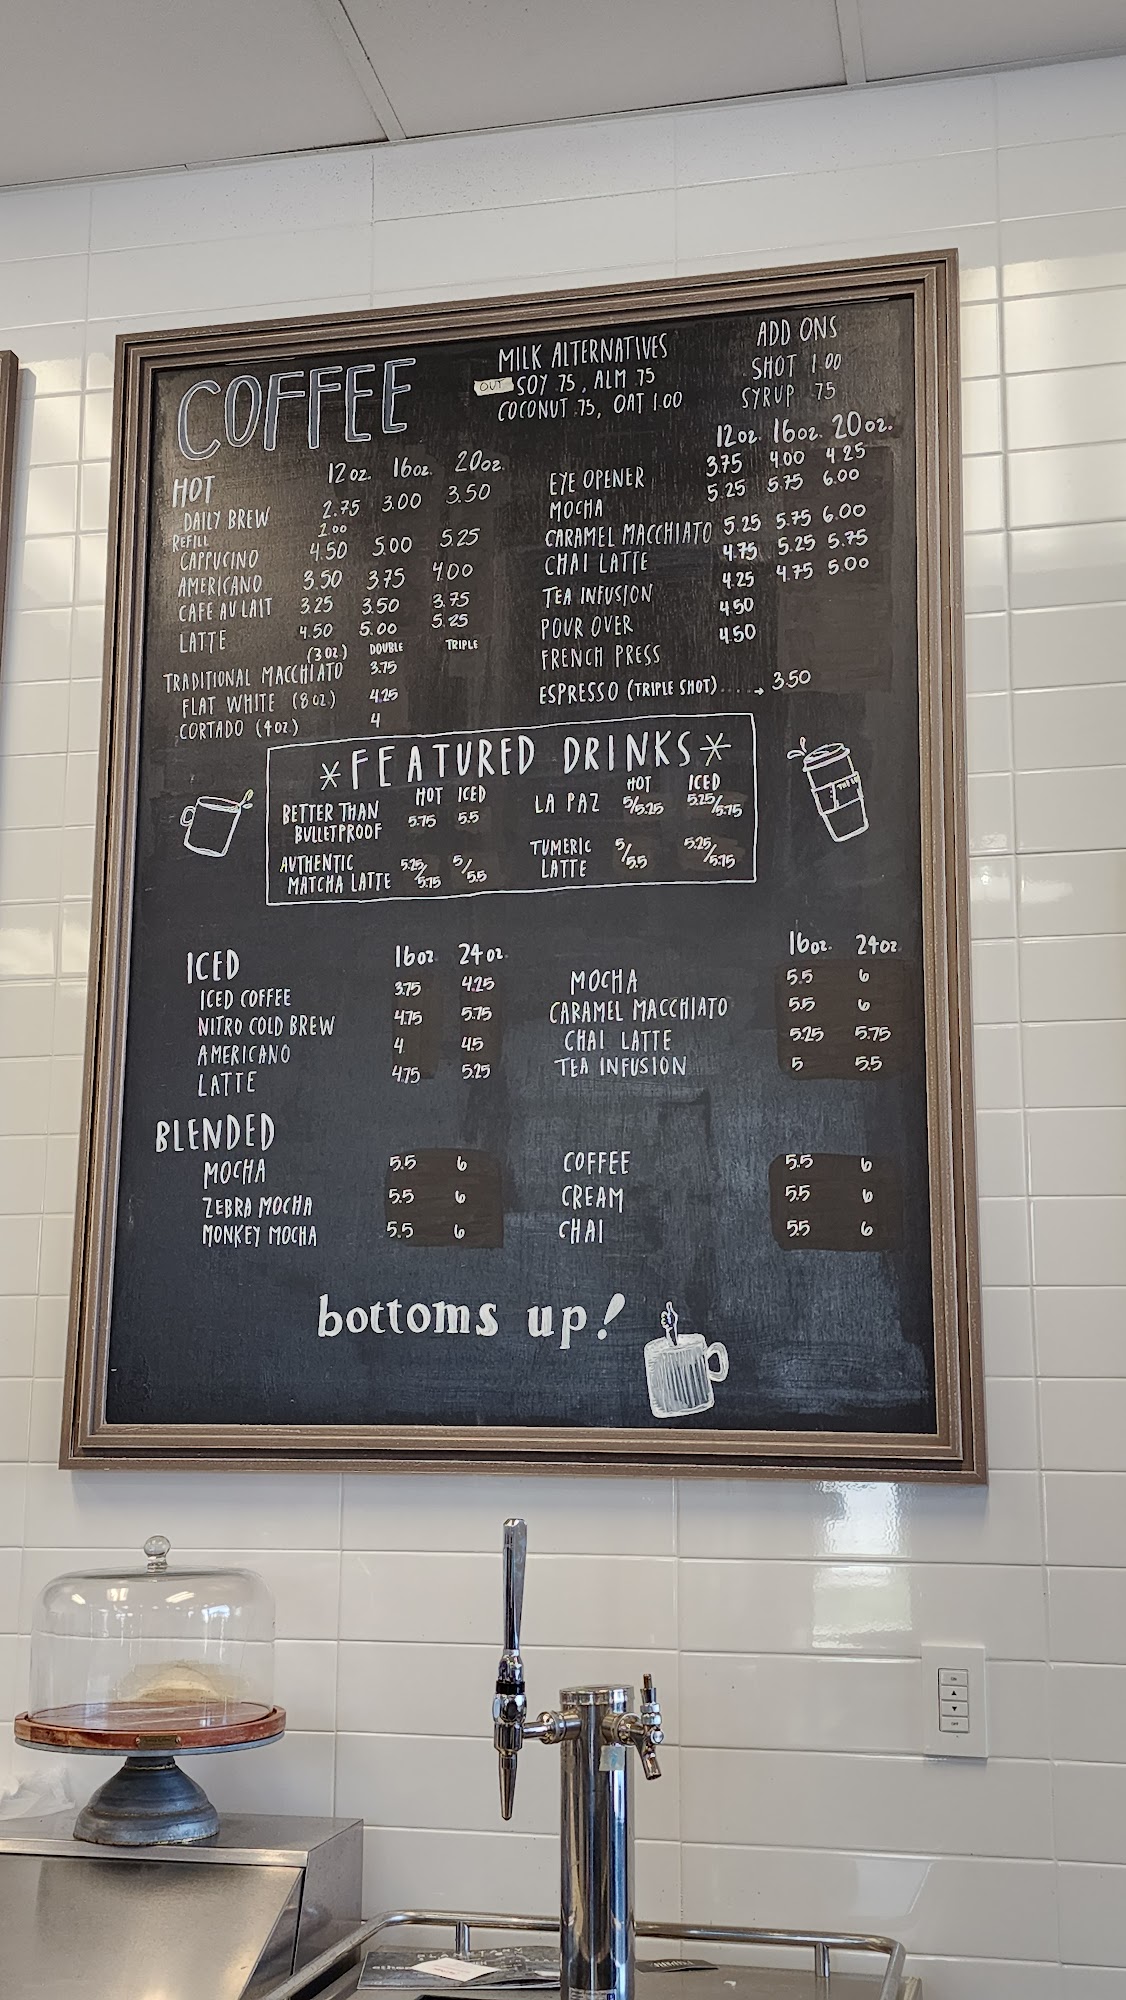 COFFEE
MILK ALTERNATIVES
OUT SOY .75, ALM .75
COCONUT .75, OAT 1.00
ADD ONS
SHOT 1.00
SYRUP .75
HOT 12oz. 16oz. 20oz.
DAILY BREW 2.75 3.00 3.50
REFILL 2.00
CAPPUCINO 4.50 5.00 5.25
AMERICANO 3.50 3.75 4.00
CAFE AU LAIT 3.25 3.50 3.75
LATTE 4.50 5.00 5.25
(3 OZ.) DOUBLE TRIPLE
TRADITIONAL MACCHIATO 3.75
FLAT WHITE (8 OZ) 4.25
CORTADO (4 OZ.) 4
12oz. 16oz. 20oz.
EYE OPENER 3.75 4.00 4.25
MOCHA 5.25 5.75 6.00
CARAMEL MACCHIATO 5.25 5.75 6.00
CHAI LATTE 4.75 5.25 5.75
TEA INFUSION 4.25 4.75 5.00
POUR OVER 4.50
FRENCH PRESS 4.50
ESPRESSO (TRIPLE SHOT)....→ 3.50
*FEATURED DRINKS*
HOT ICED
BETTER THAN
BULLETPROOF 5.75 5.5
AUTHENTIC
MATCHA LATTE 5.25/5.75 5/5.5
HOT ICED
LA PAZ 5/5.25 5.25/5.75
TUMERIC
LATTE 5/5.5 5.25/5.75
ICED 16oz. 24oz.
ICED COFFEE 3.75 4.25
NITRO COLD BREW 4.75 5.75
AMERICANO 4 4.5
LATTE 4.75 5.25
16oz. 24oz.
MOCHA 5.5 6
CARAMEL MACCHIATO 5.5 6
CHAI LATTE 5.25 5.75
TEA INFUSION 5 5.5
BLENDED
MOCHA 5.5 6
ZEBRA MOCHA 5.5 6
MONKEY MOCHA 5.5 6
COFFEE 5.5 6
CREAM 5.5 6
CHAI 5.5 6
bottoms up!